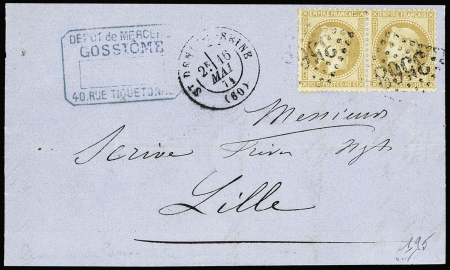 DEPOT de MERCE
GOSSIÔME
40. RUE TIQUETONNE
ST DENIS-S-SEINE
2E 16
MAI
71
(60)
EMPIRE FRANÇAIS
EMPIRE FRANÇAIS
Messieurs
Scrive Frères Ngts
Lille
195